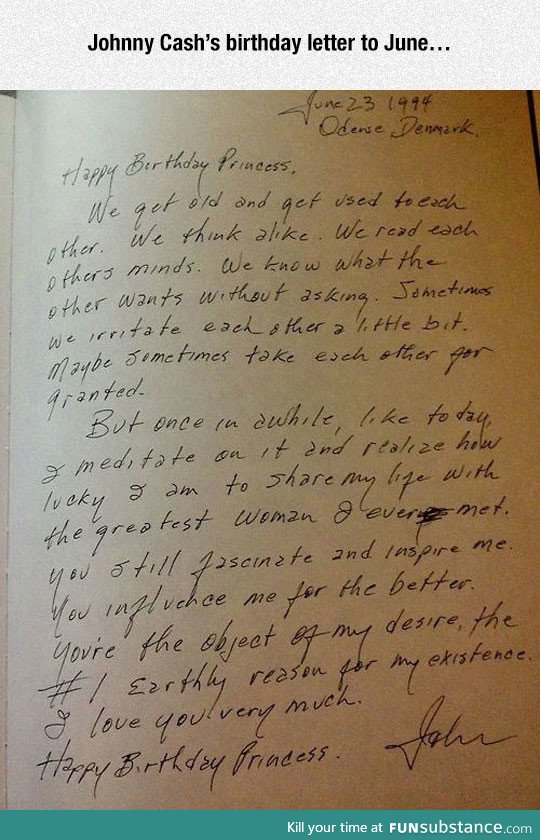 Johnny Cash's birthday letter to June...
June 23 1994
Odense, Denmark.
Happy Birthday Princess,
We get old and get used to each
other. We think alike. We read each
others minds. We know what the
other wants without asking. Sometimes
we irritate each other a little bit.
Maybe sometimes take each other for
granted.
But once in awhile, like today,
I meditate on it and realize how
lucky I am to share my life with
the greatest woman I ever met.
You still fascinate and inspire me.
You influence me for the better.
You're the object of my desire, the
#1 Earthly reason for my existence.
I love you very much.
Happy Birthday Princess.
John
Kill your time at FUNsubstance.com